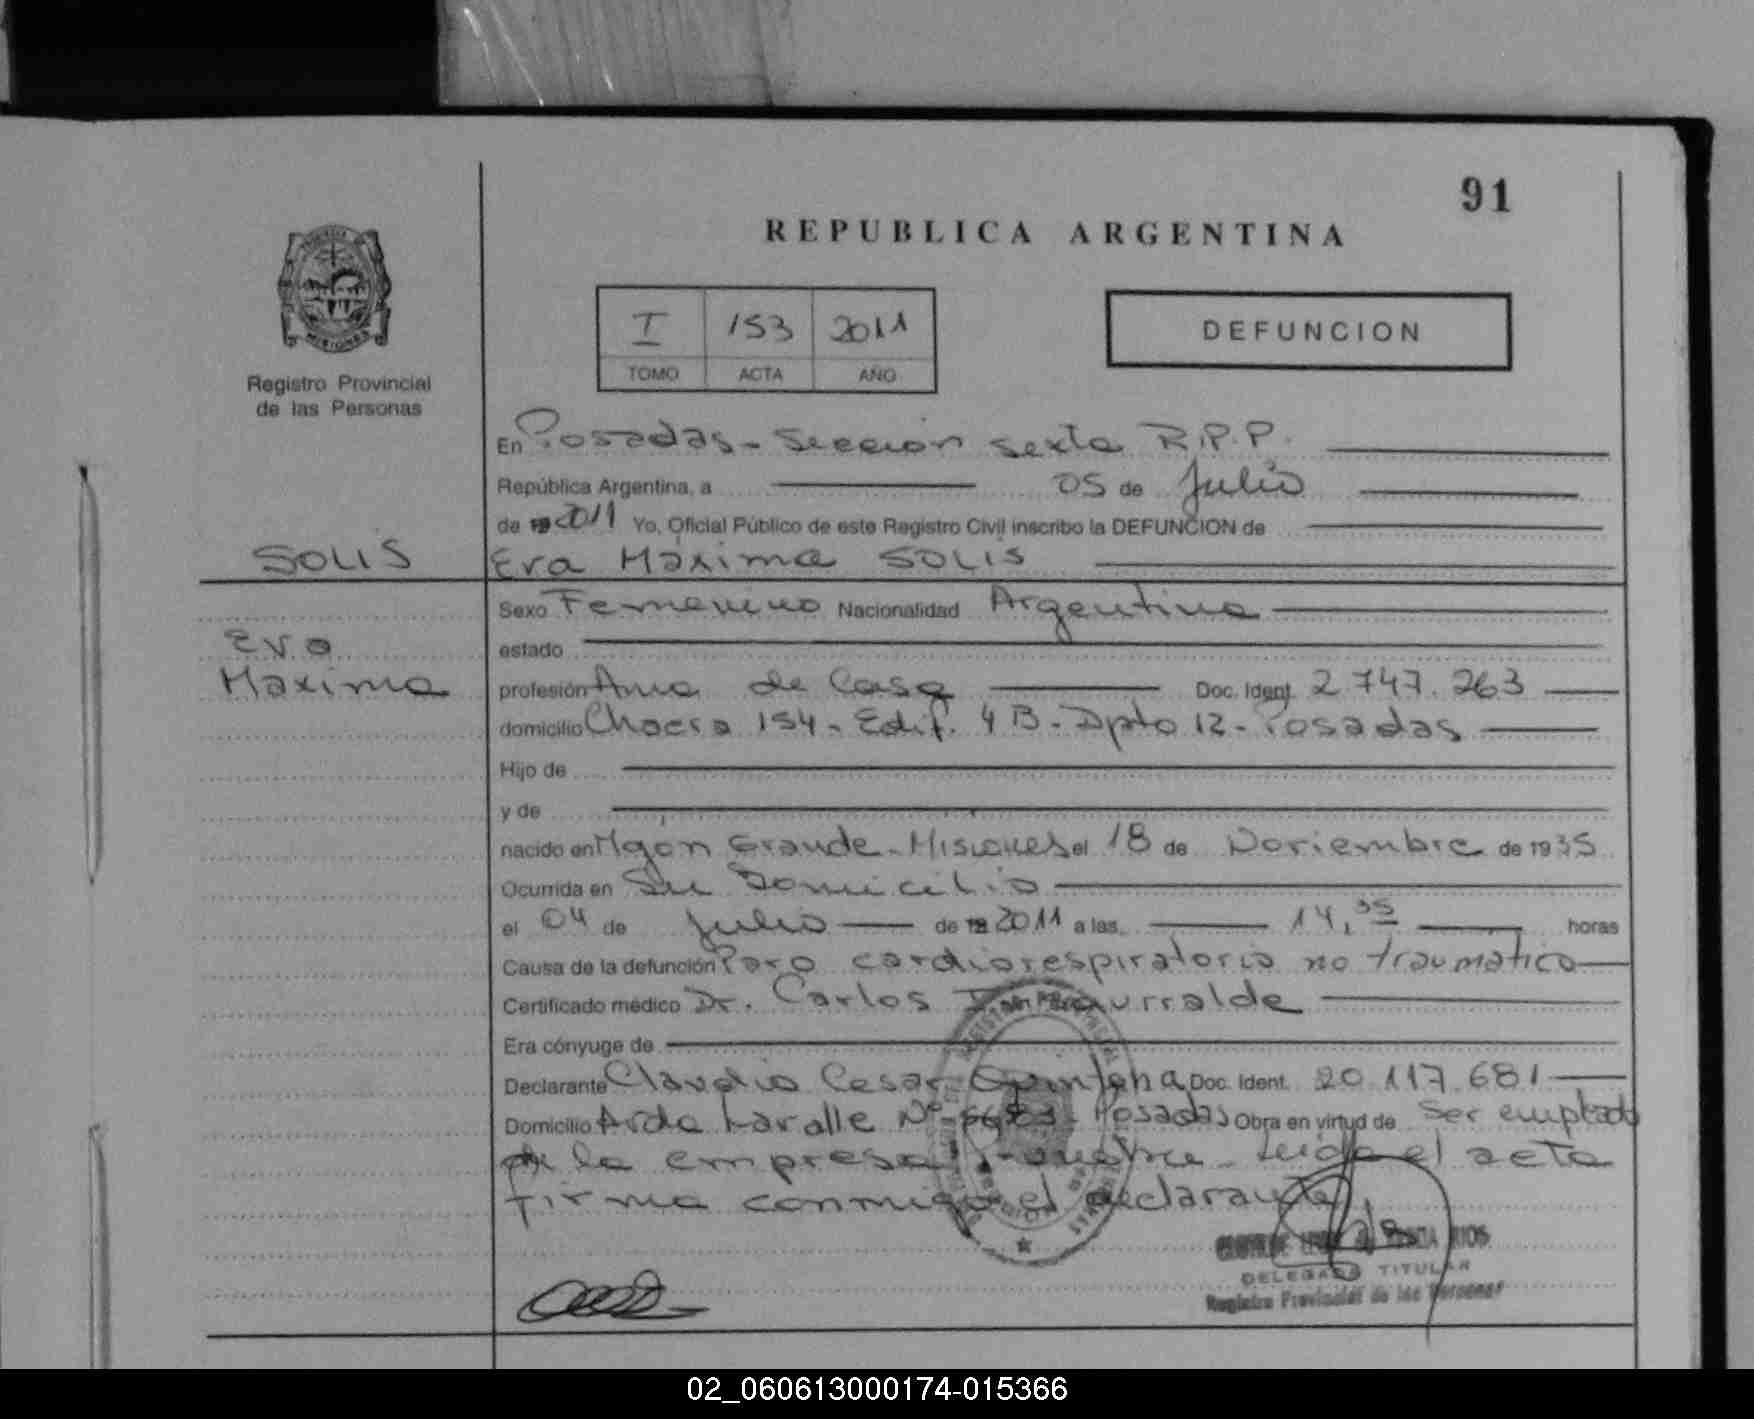 91
REPUBLICA ARGENTINA
MISIONES
Registro Provincial
de las Personas
I 153 2011
TOMO ACTA AÑO
DEFUNCION
En Posadas - Sección sexta R.P.P.
República Argentina, a 05 de Julio
de 2011 Yo, Oficial Público de este Registro Civil inscribo la DEFUNCION de
SOLIS Eva Maxima SOLIS
Sexo Femenino Nacionalidad Argentina
Eva
estado
Maxima
profesión Ama de Casa Doc. Ident. 2 747.263
domicilio Chacra 154 - Edif. 4 B - Dpto 12 - Posadas
Hijo de
y de
nacido en Mgon Grande - Misiones el 18 de Noviembre de 1935
Ocurrida en Su Domicilio
el 04 de Julio de 2011 a las 14,35 horas
Causa de la defunción Paro cardiorespiratorio no traumatico
Certificado médico Dr. Carlos
Era cónyuge de
Declarante Claudio Cesar Quintana Doc. Ident. 20.117.681
Domicilio Avda Lavalle Nº Posadas Obra en virtud de ser empleado
de la empresa leida el acta
firma conmigo el declarante
DELEGADA TITULAR
Registro Provincial de las Personas
02_060613000174-015366